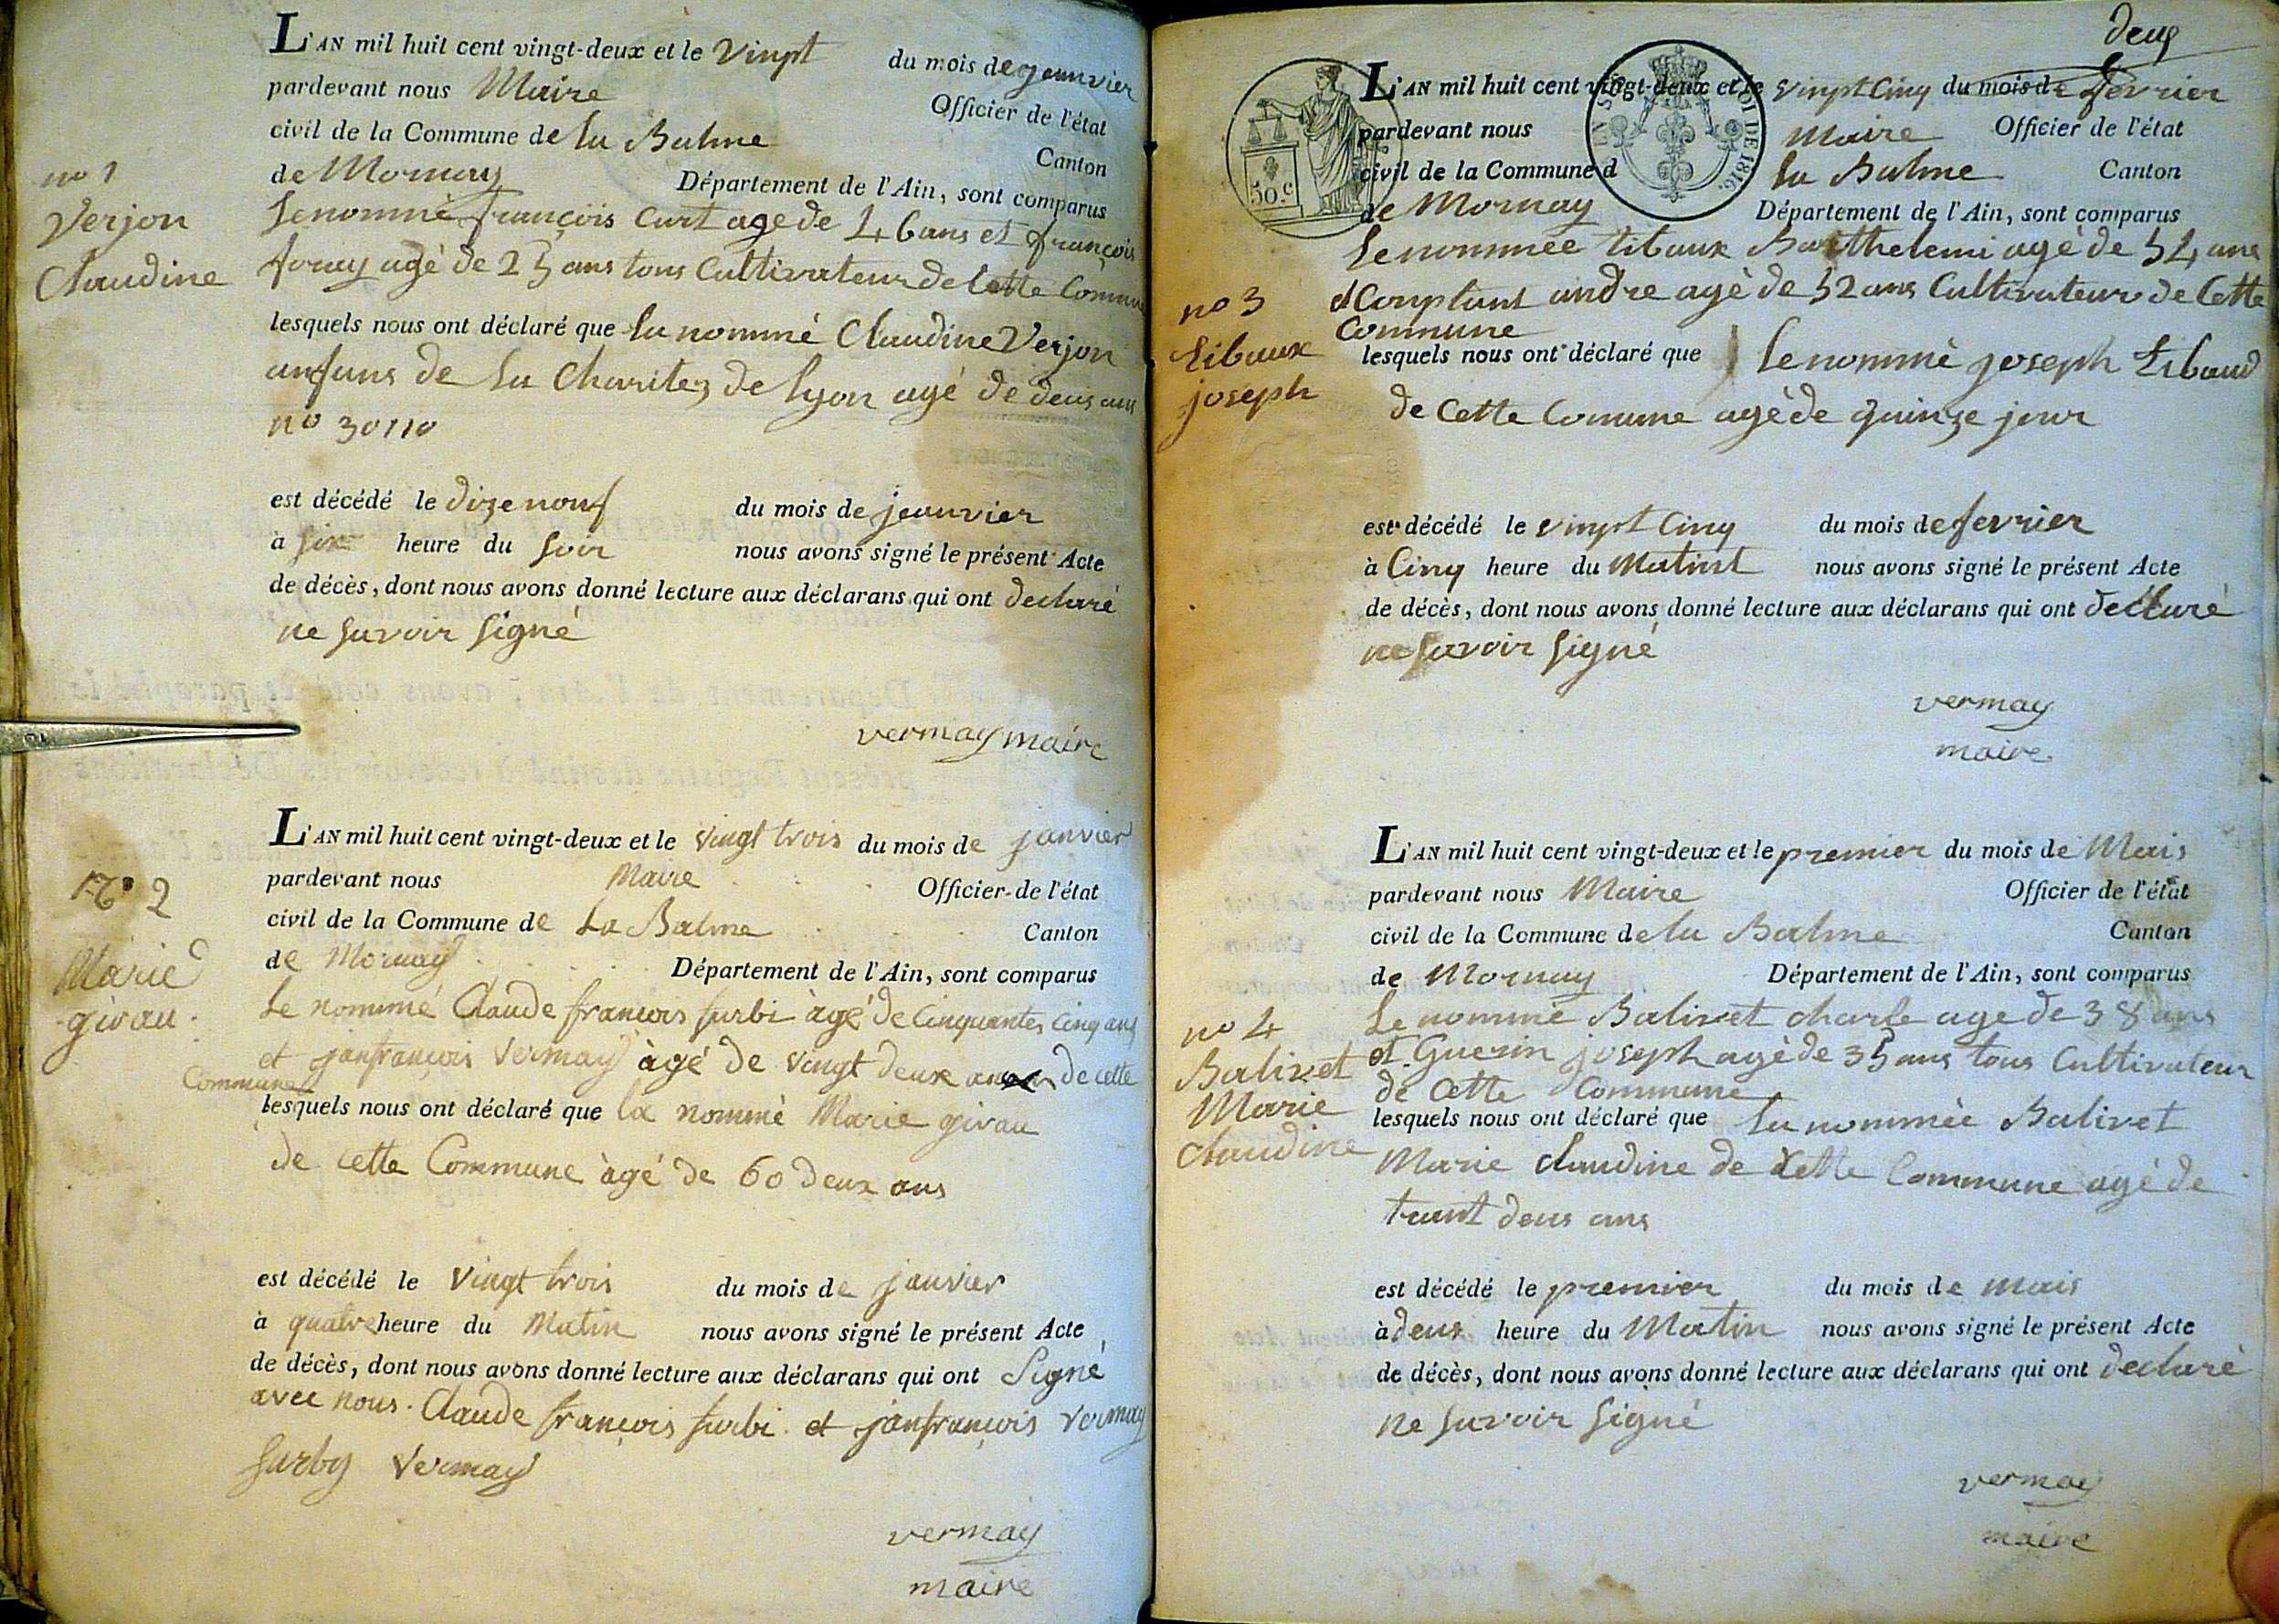 L'AN mil huit cent vingt-deux et le vinpt du mois de jeanvier
pardevant nous Maire Officier de l'état
civil de la Commune de la Balme Canton
de Mornay Département de l'Ain, sont comparus
no 1
Verjon
Claudine
Lenommé françois Curt age de 46 ans et françois
agé de 25 ans tous Cultivateur de Cette Commune
lesquels nous ont déclaré que la nommé Claudine Verjon
anfans de La Charitez de lyon agé de deus ans
no 30110
est décédé le dizenouf du mois de jeanvier
à six heure du soir nous avons signé le présent Acte
de décès, dont nous avons donné lecture aux déclarans qui ont declaré
ne savoir signé
vermay maire
L'AN mil huit cent vingt-deux et le vingt trois du mois de janvier
pardevant nous Maire Officier de l'état
civil de la Commune de La Balme Canton
de Mornay Département de l'Ain, sont comparus
No 2
Marie
girau
Le nommé Claude françois surbi àgé de Cinquantes Cinq ans
et janfrançois Vermay àgé de vingt deux ans de cette
Commune
lesquels nous ont déclaré que la nommé Marie girau
de cette Commune àgé de 60 deux ans
est décédé le vingt trois du mois de janvier
à quatre heure du Matin nous avons signé le présent Acte
de décès, dont nous avons donné lecture aux déclarans qui ont Signé
avec nous. Claude françois surbi et janfrançois vermay
surby Vermay
vermay
maire
deus
50 c
ROI DE 1816.
L'AN mil huit cent vingt-deux et le vinpt Cinq du mois de fevrier
pardevant nous Maire Officier de l'état
civil de la Commune d la Balme Canton
de Mornay Département de l'Ain, sont comparus
no 3
Tibaux
joseph
Lenommée tibaux Barthelemi agé de 54 ans
et Couptant andre agé de 52 ans Cultivateur de Cette
Commune
lesquels nous ont déclaré que Lenommé joseph Tibaud
de Cette Comune agé de quinze jour
est décédé le vinpt Cinq du mois de fevrier
à Cinq heure du Matint nous avons signé le présent Acte
de décès, dont nous avons donné lecture aux déclarans qui ont declaré
ne savoir signé
vermay
maire
L'AN mil huit cent vingt-deux et le premier du mois de Mais
pardevant nous Maire Officier de l'état
civil de la Commune de la Balme Canton
de Mornay Département de l'Ain, sont comparus
no 4
Balivet
Marie
Claudine
Le nommé Balivet charle age de 38 ans
et Guerin joseph agé de 35 ans tous Cultivateur
de Cette Commune
lesquels nous ont déclaré que La nommée Balivet
Marie Claudine de Cette Commune agé de
trant deus ans
est décédé le premier du mois de mais
à deus heure du Matin nous avons signé le présent Acte
de décès, dont nous avons donné lecture aux déclarans qui ont declaré
ne savoir signé
vermay
maire